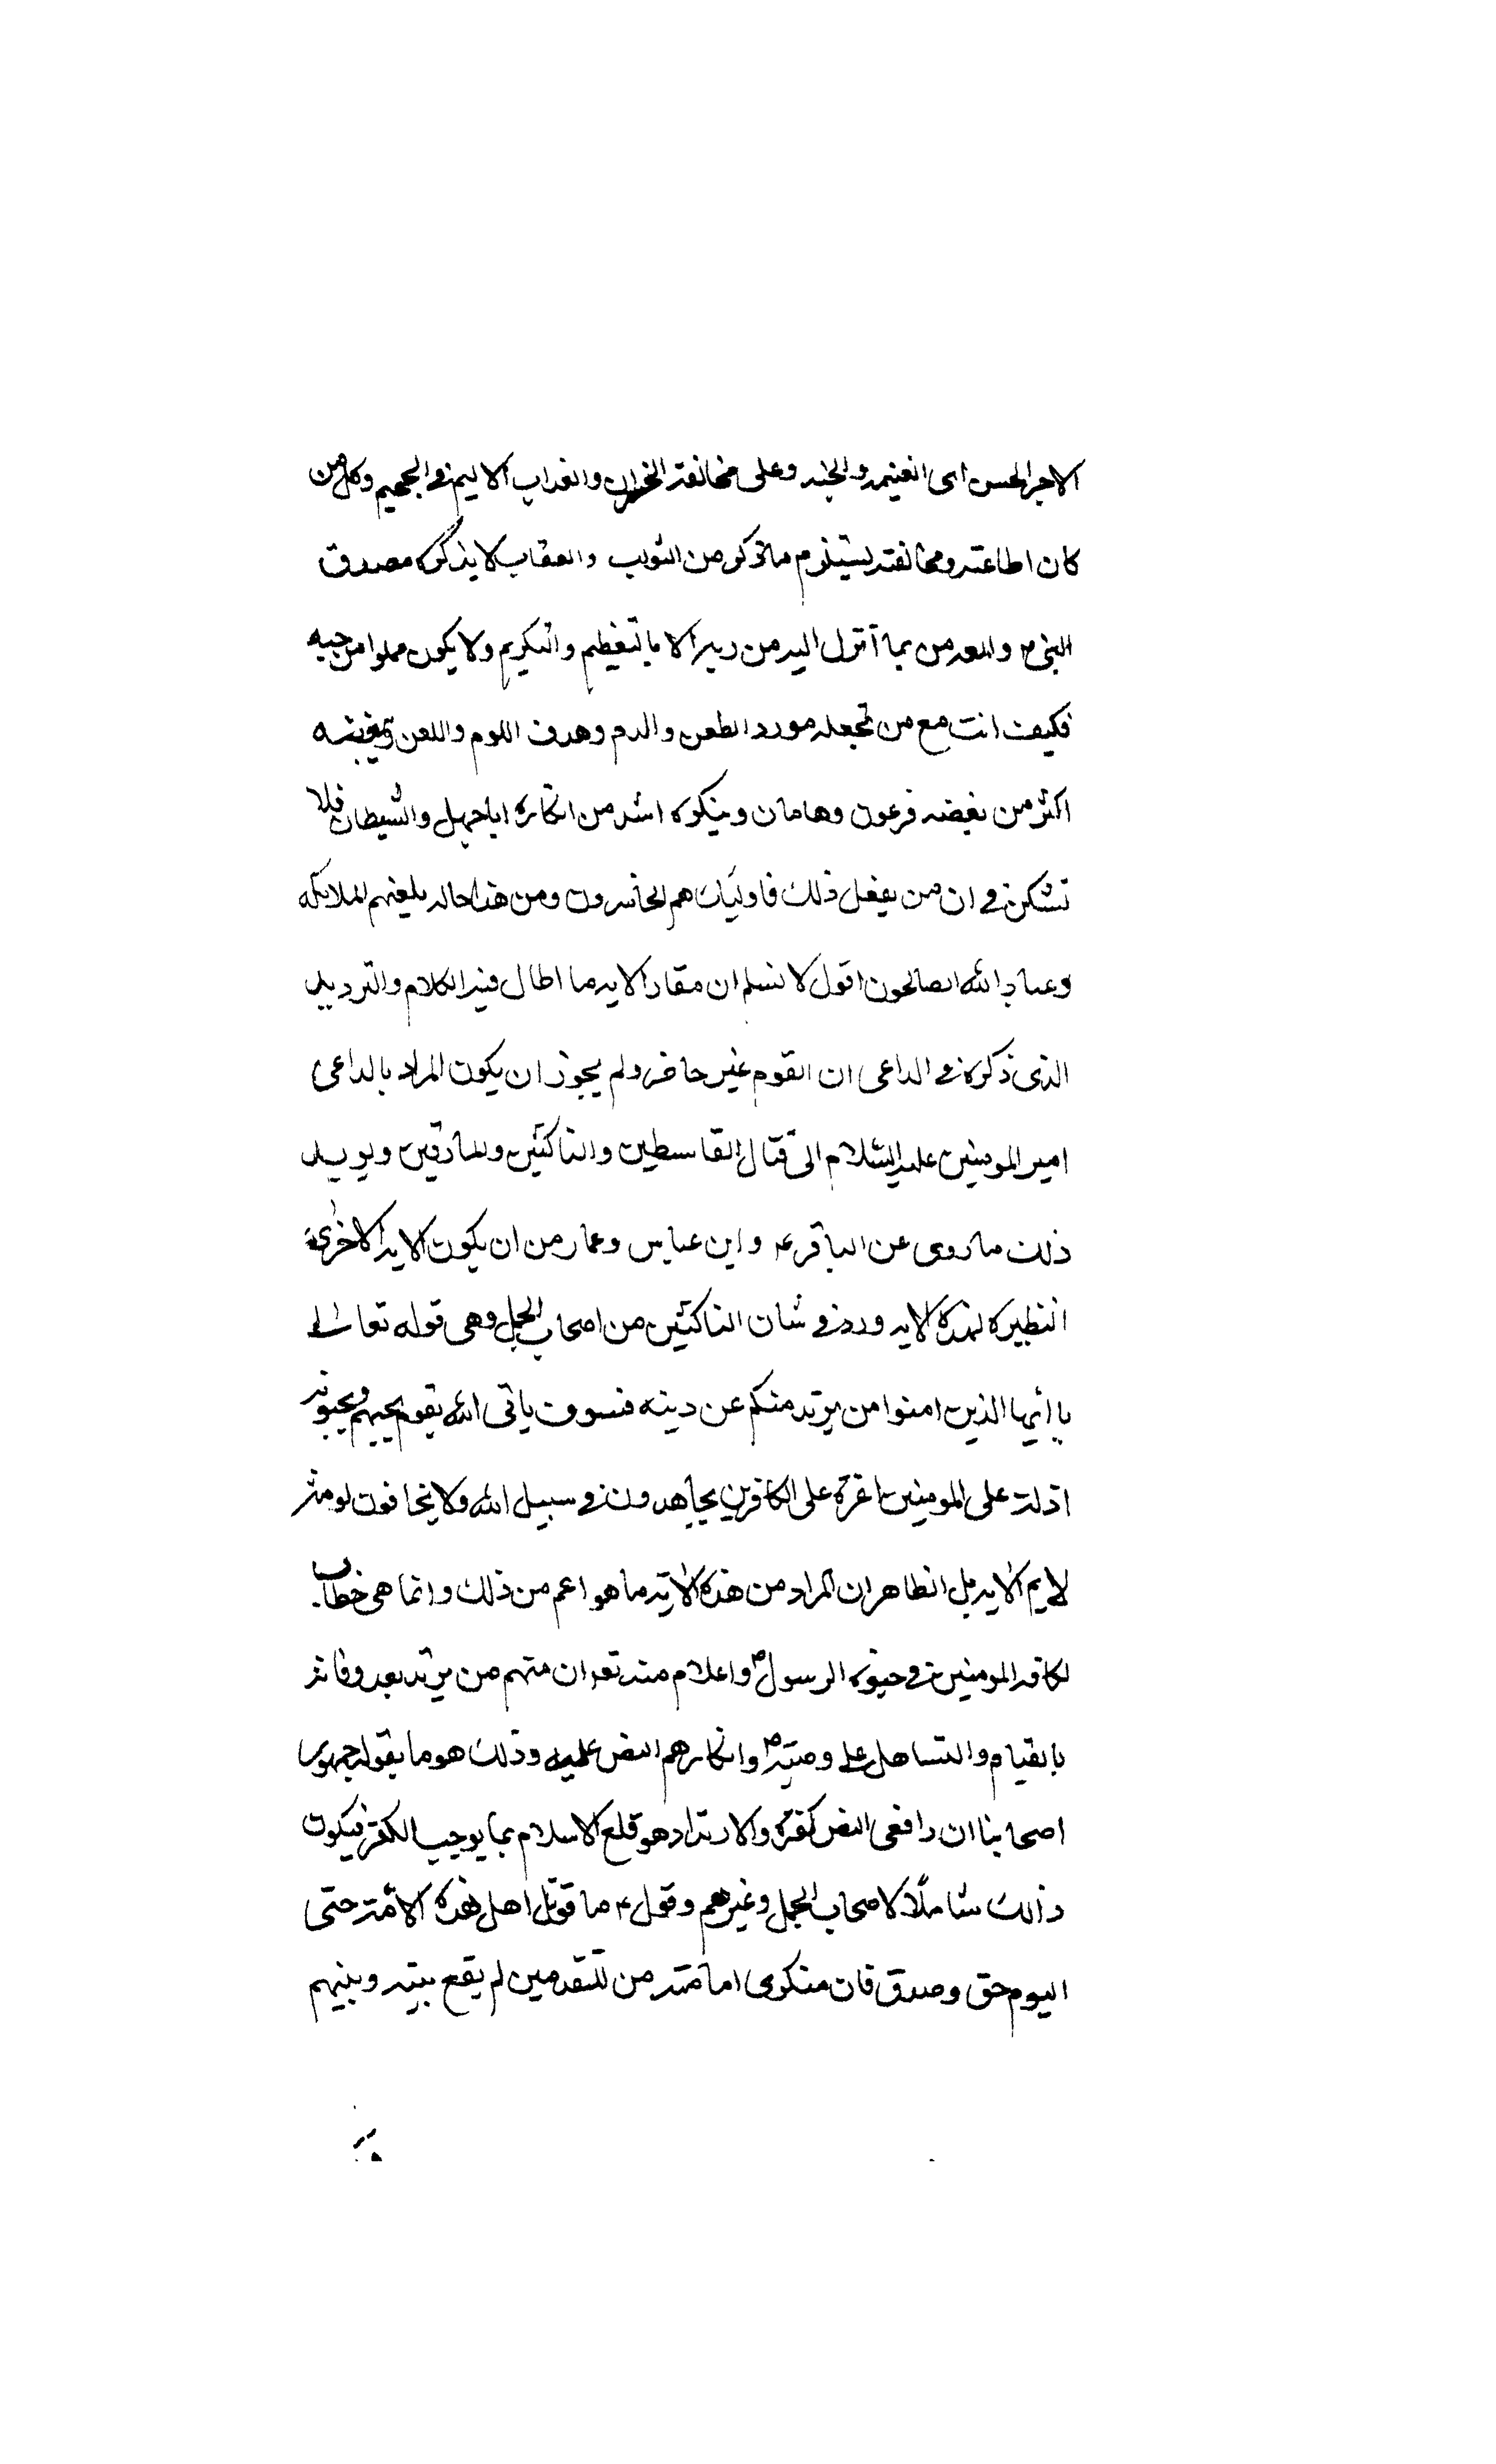 الاجر الحسن اى الغنيمه والجنه وعلى مخالفته الخسران والعذاب الاليم فى الجحيم وكل من
كان اطاعته ومخالفته يستلزم ما ذكر من الثواب والعقاب لا يذكره مصدق
النبى ص والمؤمن بما انزل اليه من ربه الا بالتعظيم والتكريم ولا يكون مملوا من حبه
فكيف انت مع من تجعله مورد الطعن والذم وهدف اللوم واللعن وتبغضه
اكثر من بغضه فرعون وهامان وينكره اشد من انكاره اباجهل والشيطان فلا
تشكن فى ان من يفعل ذلك فاولئك هم الخاسرون ومن هذا حاله يلعنهم الملائكه
وعباد الله الصالحون اقول لا نسلم ان مفاد الايه ما اطال فيه الكلام والترديد
الذى ذكره فى الداعى ان القوم غير حاضر ولم يجوز ان يكون المراد بالداعى
امير المومنين عليه السلام الى قتال القاسطين والناكثين والمارقين ويويد
ذلك ما روى عن الباقر ع وابن عباس وعمار من ان يكون الايه الاخرى
النظيره لهذه الايه ورد فى شان الناكثين من اصحاب الجمل وهى قوله تعالى
يا أيها الذين امنوا من يرتد منكم عن دينه فسوف ياتى الله بقوم يحبهم ويحبونه
اذلة على المومنين اعزة على الكافرين يجاهدون فى سبيل الله ولا يخافون لومة
لايم الايه بل الظاهر ان المراد من هذه الاية ما هو اعم من ذلك وانما هى خطاب
لكافه المومنين فى حيوة الرسول ص واعلام منه تع ان منهم من يرتد بعد وفاته
بالقيام والتساهل على وصيته ص وانكارهم النص عليه وذلك هو ما يقوله جمهور
اصحابنا ان دافعى النص كفرة والارتداد هو قلع الاسلام بما يوجب الكفر فيكون
ذالك شاملًا لاصحاب الجمل وغيرهم وقول ع ما قوتل اهل هذه الاية حتى
اليوم حق وصدق فان منكرى امامته من المتقدمين لم يقع بينه وبينهم